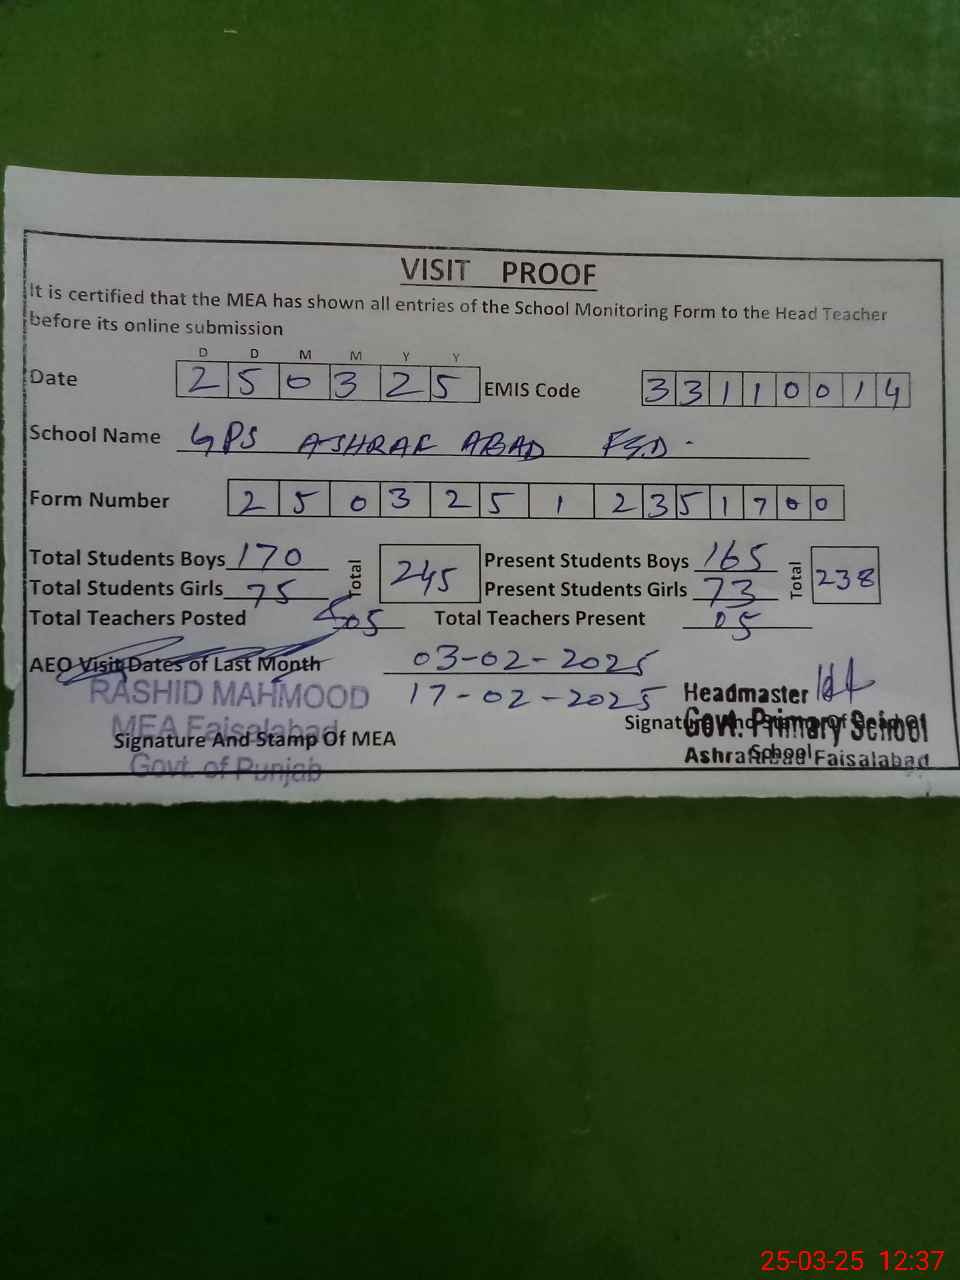 VISIT PROOF
It is certified that the MEA has shown all entries of the School Monitoring Form to the Head Teacher
before its online submission
D D M M Y Y
Date 2 5 0 3 2 5 EMIS Code 3 3 1 1 0 0 1 4
School Name GPS ASHRAF ABAD FSD.
Form Number 2 5 0 3 2 5 1 2 3 5 1 7 0 0
Total Students Boys 170 Total 245 Present Students Boys 165 Total 238
Total Students Girls 75 Present Students Girls 73
Total Teachers Posted 05 Total Teachers Present 05
AEO Visit Dates of Last Month 03-02-2025
17-02-2025
RASHID MAHMOOD
MEA Faisalabad
Govt. of Punjab
Signature And Stamp Of MEA
Headmaster
Govt. Primary School
Ashraf Abad Faisalabad
Signature And Stamp Of
School
25-03-25 12:37